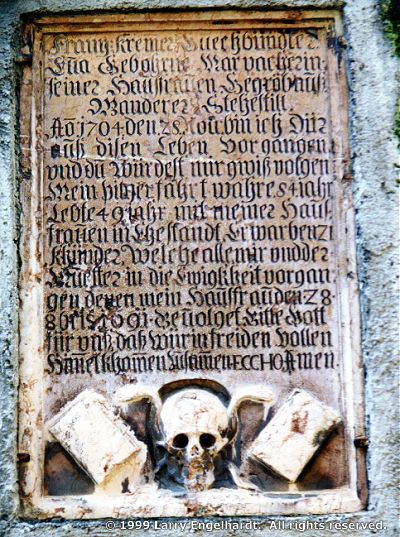 Franz Kremer Buechbindter
Eua Gebohrne
seiner Hausfrauen Begröbnus
Wanderer Stehe still.
Ao 1704 den 28 Nou: bin ich Dür
auß disen Leben Vorgangen
vnd du Würdest mir gwiß volgen
Mein bilgerfahrt wahre 84 iahr
Lebte 49 iahr mit meiner Hauß
frauen in Ehestandt, Erwarben 21
khinder Welche alle mir vnd der
Muetter in die Ewigkheit vorgan
gen denen mein Haußfrau den 28
8bris 1691 Bitte Gott
für vnß daß wür in freiden Vollen
Himel khomen Zusamen
© 1999 Larry Engelhardt. All rights reserved.